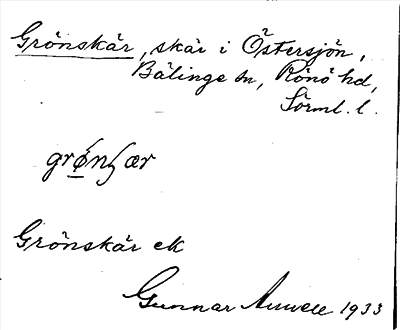 Grönskär, skär i Östersjön,
Bälinge sn, Rönö hd,
Sörml. l.
grønʃær
Grönskär ek
Gunnar 1933